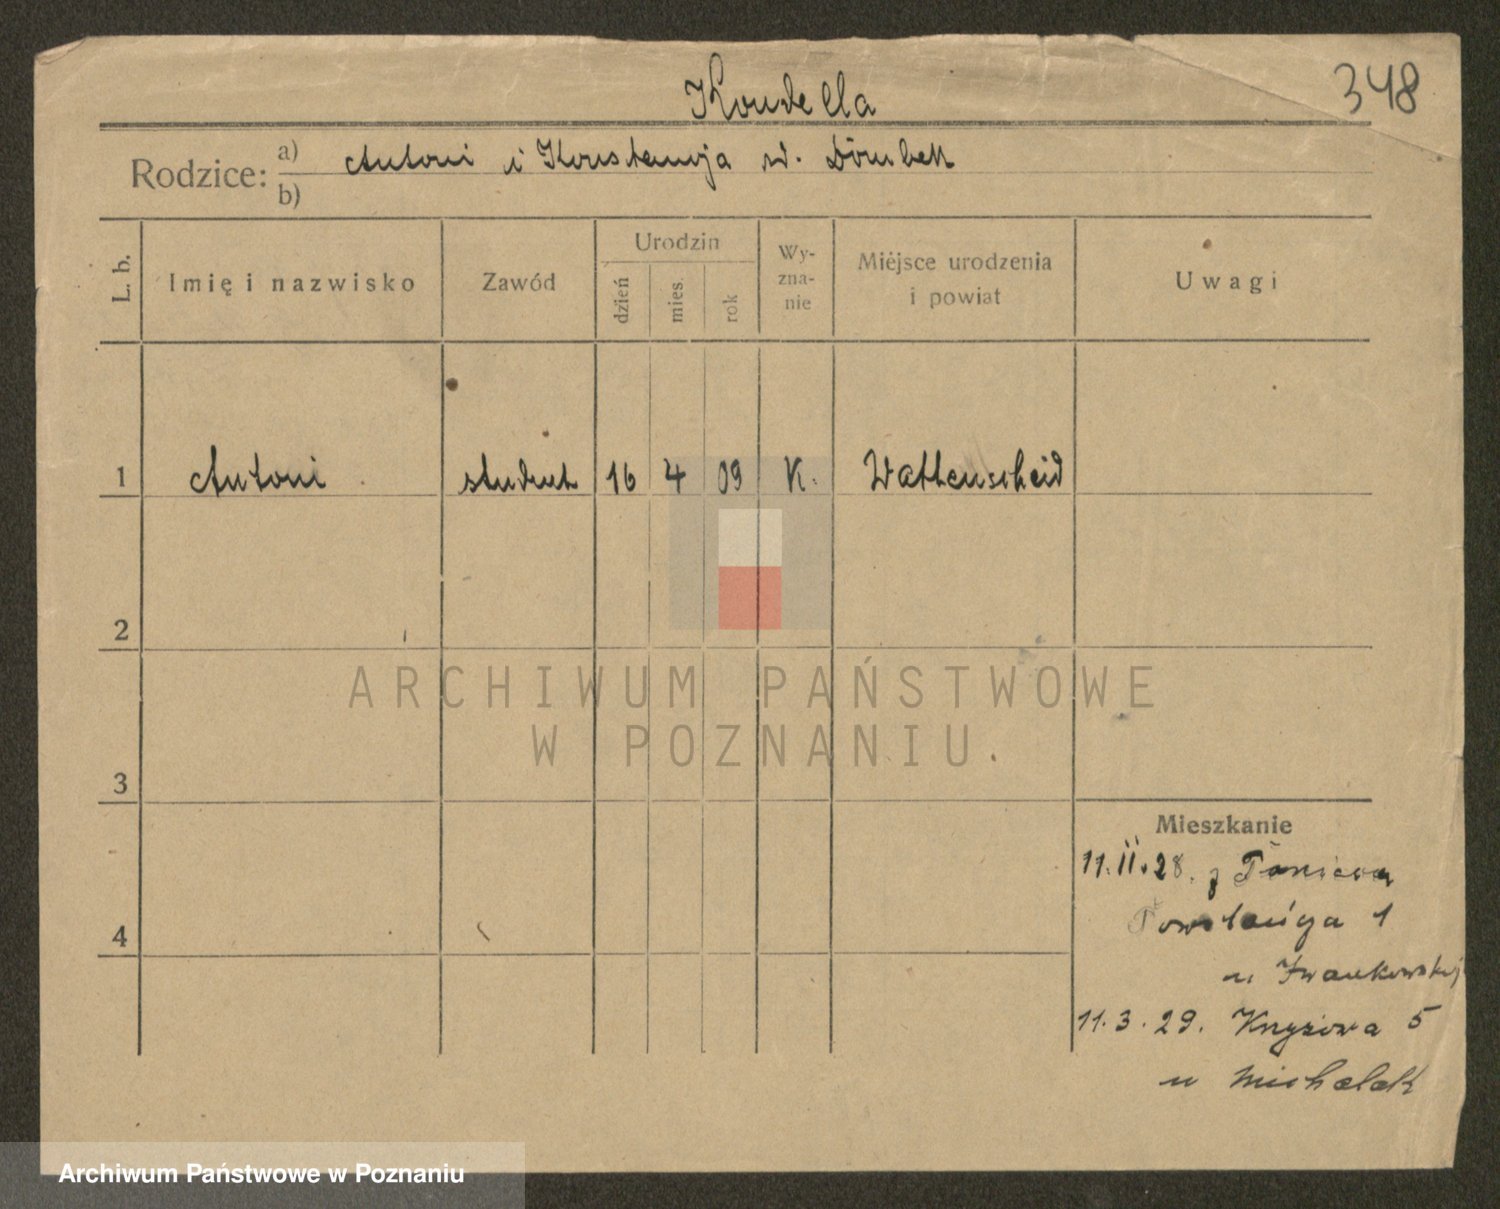 348
Koudella
Rodzice: a) Antoni i Konstancja zd. Dömbek
b)
L. b. Imię i nazwisko Zawód Urodzin dzień mies. rok Wy-zna-nie Miejsce urodzenia i powiat Uwagi
1 Antoni student 16 4 09 K. Wattenscheid
2
3
4
Mieszkanie
11.II.28. z
1
u Iwankowskiej
11.3.29. Krzyżowa 5
u Michalak
ARCHIWUM PAŃSTWOWE
W POZNANIU
Archiwum Państwowe w Poznaniu